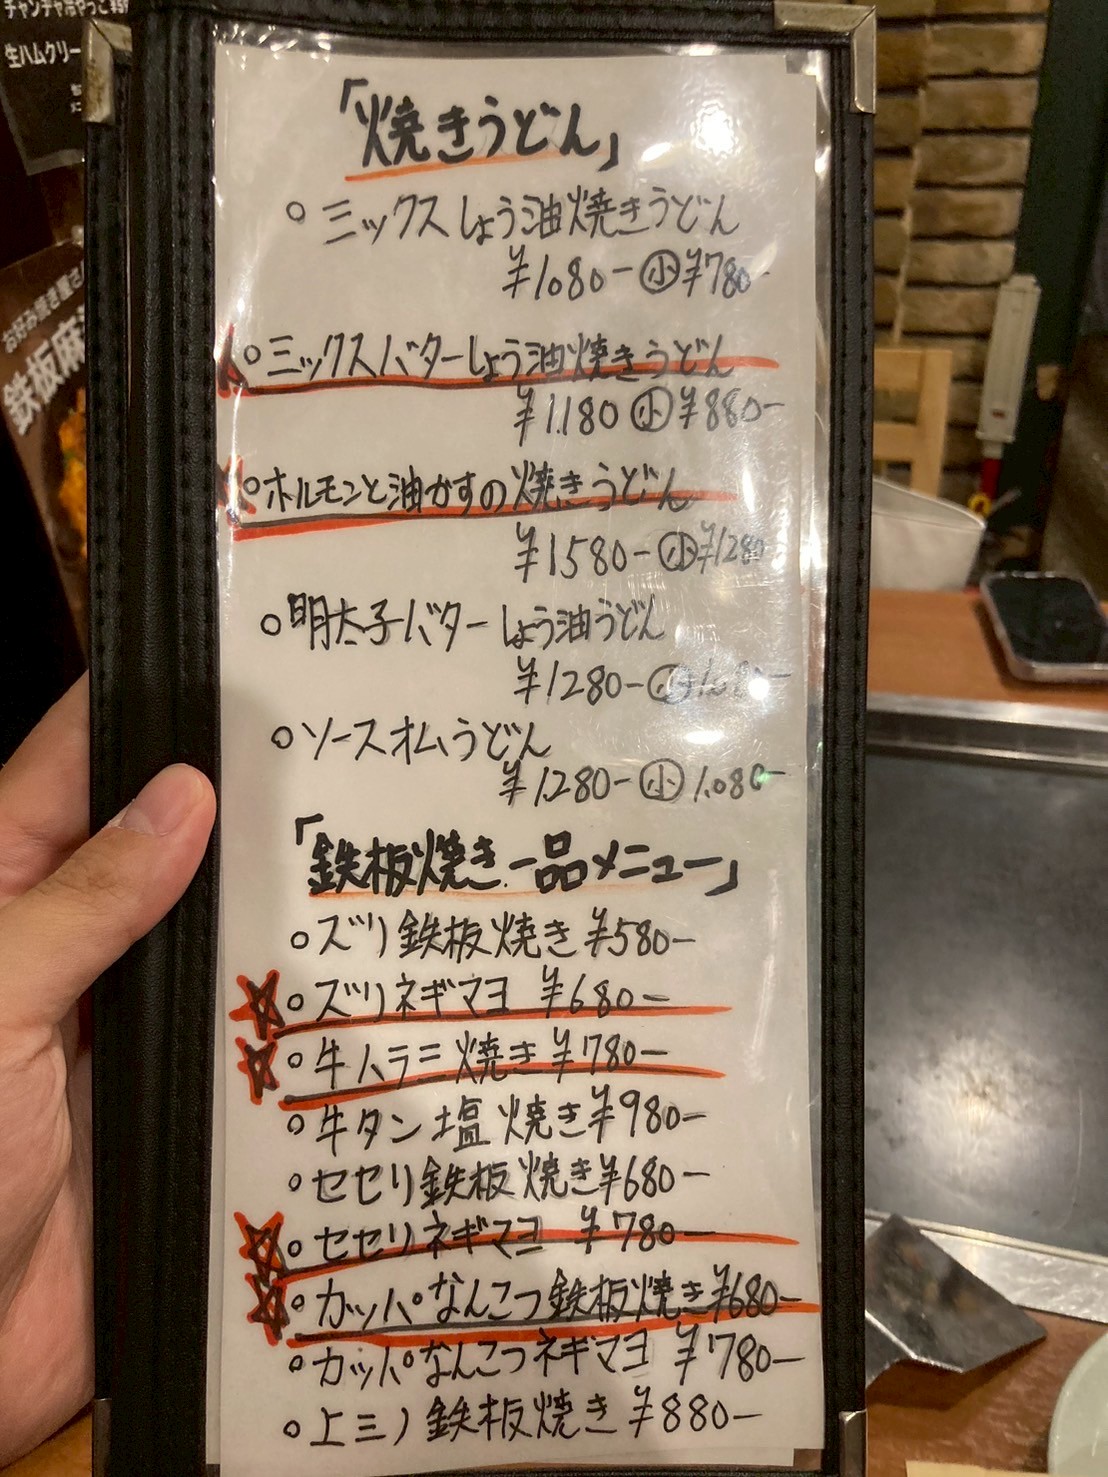 チャンチャ冷やっこ
生ハムクリー
お好み焼き屋さ
鉄板麻
「焼きうどん」
○ミックスしょう油焼きうどん
¥1080-㊙小 ¥780-
○ミックスバターしょう油焼きうどん
¥1,180 小 ¥880-
○ホルモンと油かすの焼きうどん
¥1580-小 ¥1280
○明太子バターしょう油うどん
¥1280-小
○ソースオムうどん
¥1,280-小 1,080-
「鉄板焼き一品メニュー」
○ズリ鉄板焼き ¥580-
☆○ズリネギマヨ ¥680-
☆○牛ハラミ焼き ¥780-
○牛タン塩焼き ¥980-
○セセリ鉄板焼き ¥680-
☆○セセリネギマヨ ¥780-
☆○カッパなんこつ鉄板焼き ¥680-
○カッパなんこつネギマヨ ¥780-
○上ミノ鉄板焼き ¥880-